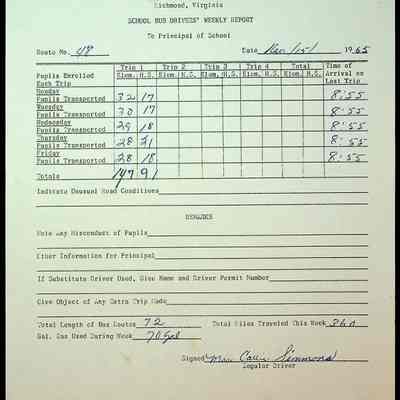 Richmond, Virginia
SCHOOL BUS DRIVERS' WEEKLY REPORT
To Principal of School
Route No. 48 Date 1965
Trip 1 Trip 2 Trip 3 Trip 4 Total Time of
Pupils Enrolled Elem. H.S. Elem. H.S. Elem. H.S. Elem. H.S. Elem. H.S. Arrival on
Each Trip Last Trip
Monday
Pupils Transported 32 17 8:55
Tuesday
Pupils Transported 30 17 8:55
Wednesday
Pupils Transported 29 18 8:55
Thursday
Pupils Transported 28 21 8:55
Friday
Pupils Transported 28 18 8:55
Totals 147 91
Indicate Unusual Road Conditions
REMARKS
Note Any Misconduct of Pupils
Other Information for Principal
If Substitute Driver Used, Give Name and Driver Permit Number
Give Object of Any Extra Trip Made
Total Length of Bus Routes 72 Total Miles Traveled This Week 360
Gal. Gas Used During Week 70 Gal
Signed Mrs. Simmons
Regular Driver